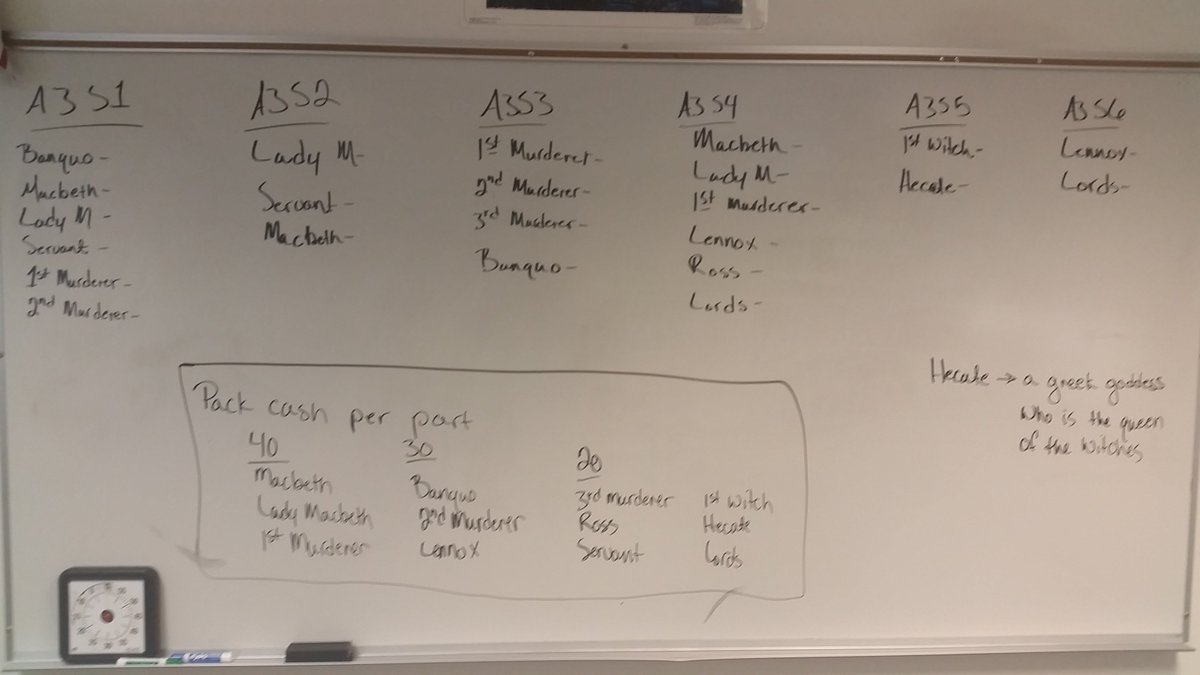 A3S1
Banquo-
Macbeth-
Lady M-
Servant-
1st Murderer-
2nd Murderer-
A3S2
Lady M-
Servant-
Macbeth-
A3S3
1st Murderer-
2nd Murderer-
3rd Murderer-
Banquo-
A3S4
Macbeth-
Lady M-
1st Murderer-
Lennox-
Ross-
Lords-
A3S5
1st Witch-
Hecate-
A3S6
Lennox-
Lords-
Hecate → a greek goddess
who is the queen
of the witches
Pack cash per part
40
Macbeth
Lady Macbeth
1st Murderer
30
Banquo
2nd Murderer
Lennox
20
3rd murderer
Ross
Servant
1st Witch
Hecate
Lords